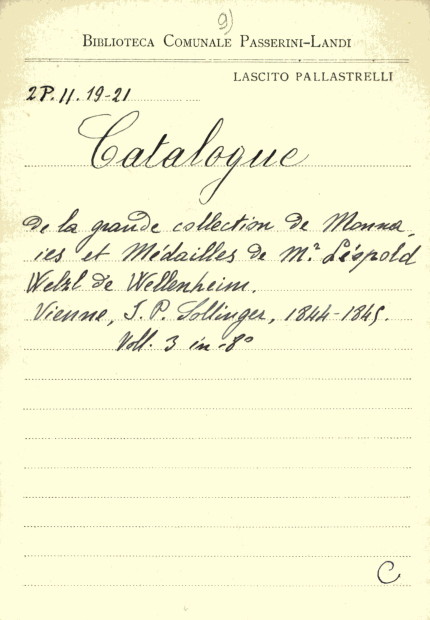 9)
BIBLIOTECA COMUNALE PASSERINI-LANDI
LASCITO PALLASTRELLI
2P.11.19-21
Catalogue
de la grande collection de Monna-
ies et Médailles de M.r Léopold
Welzl de Wellenheim.
Vienne, J. P. Sollinger, 1844-1845.
Voll. 3 in-8°
C